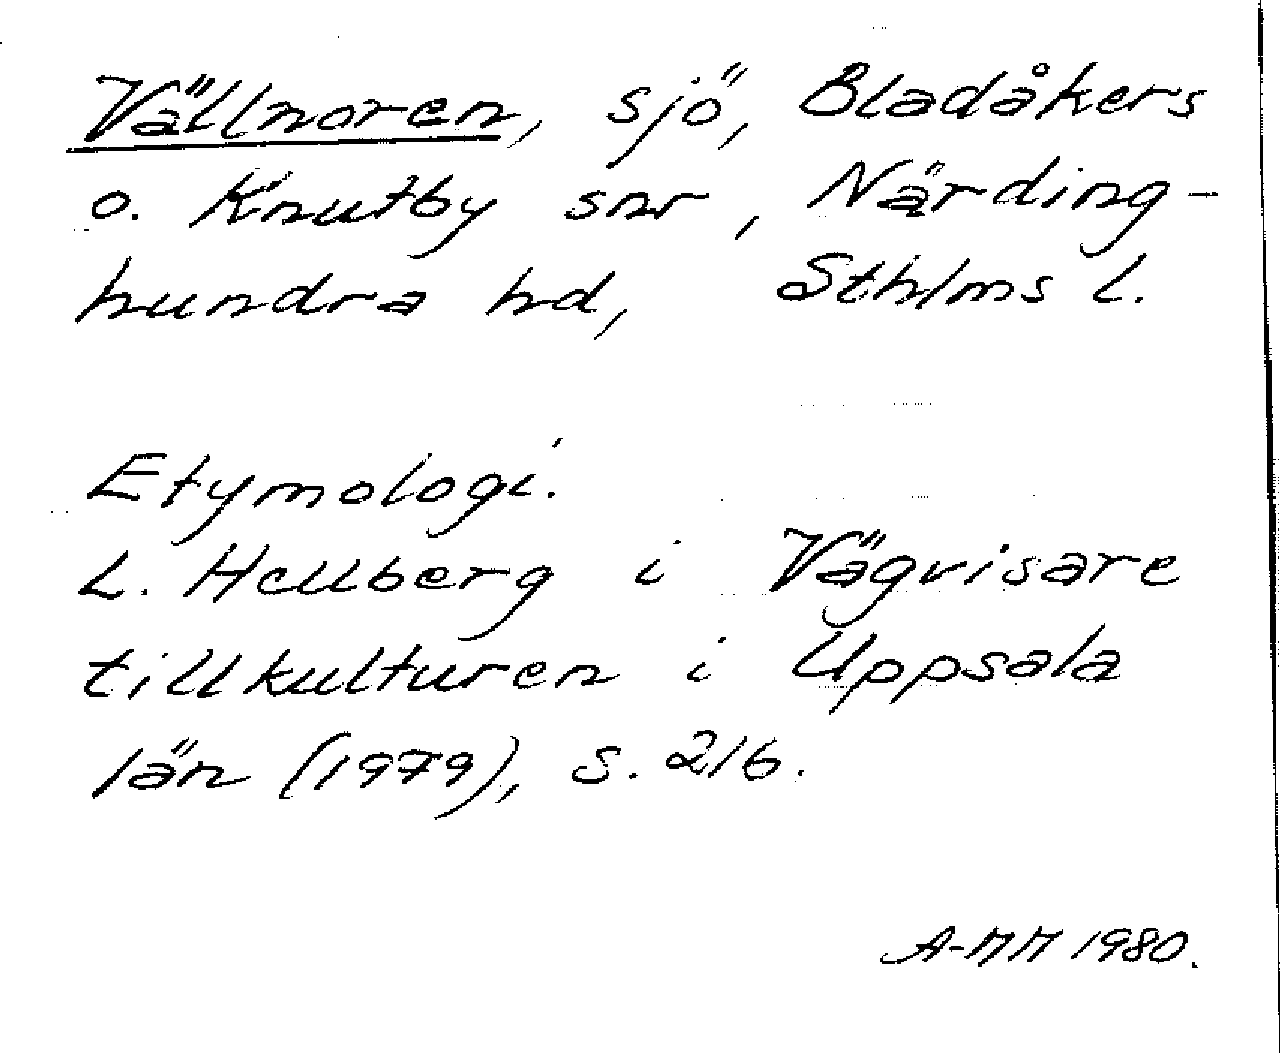 Vällnoren, sjö, Bladåkers
o. Knutby snr, Närding-
hundra hd, Sthlms l.
Etymologi.
L. Hellberg i Vägvisare
till kulturen i Uppsala
län (1979), s. 216.
A-MM 1980.